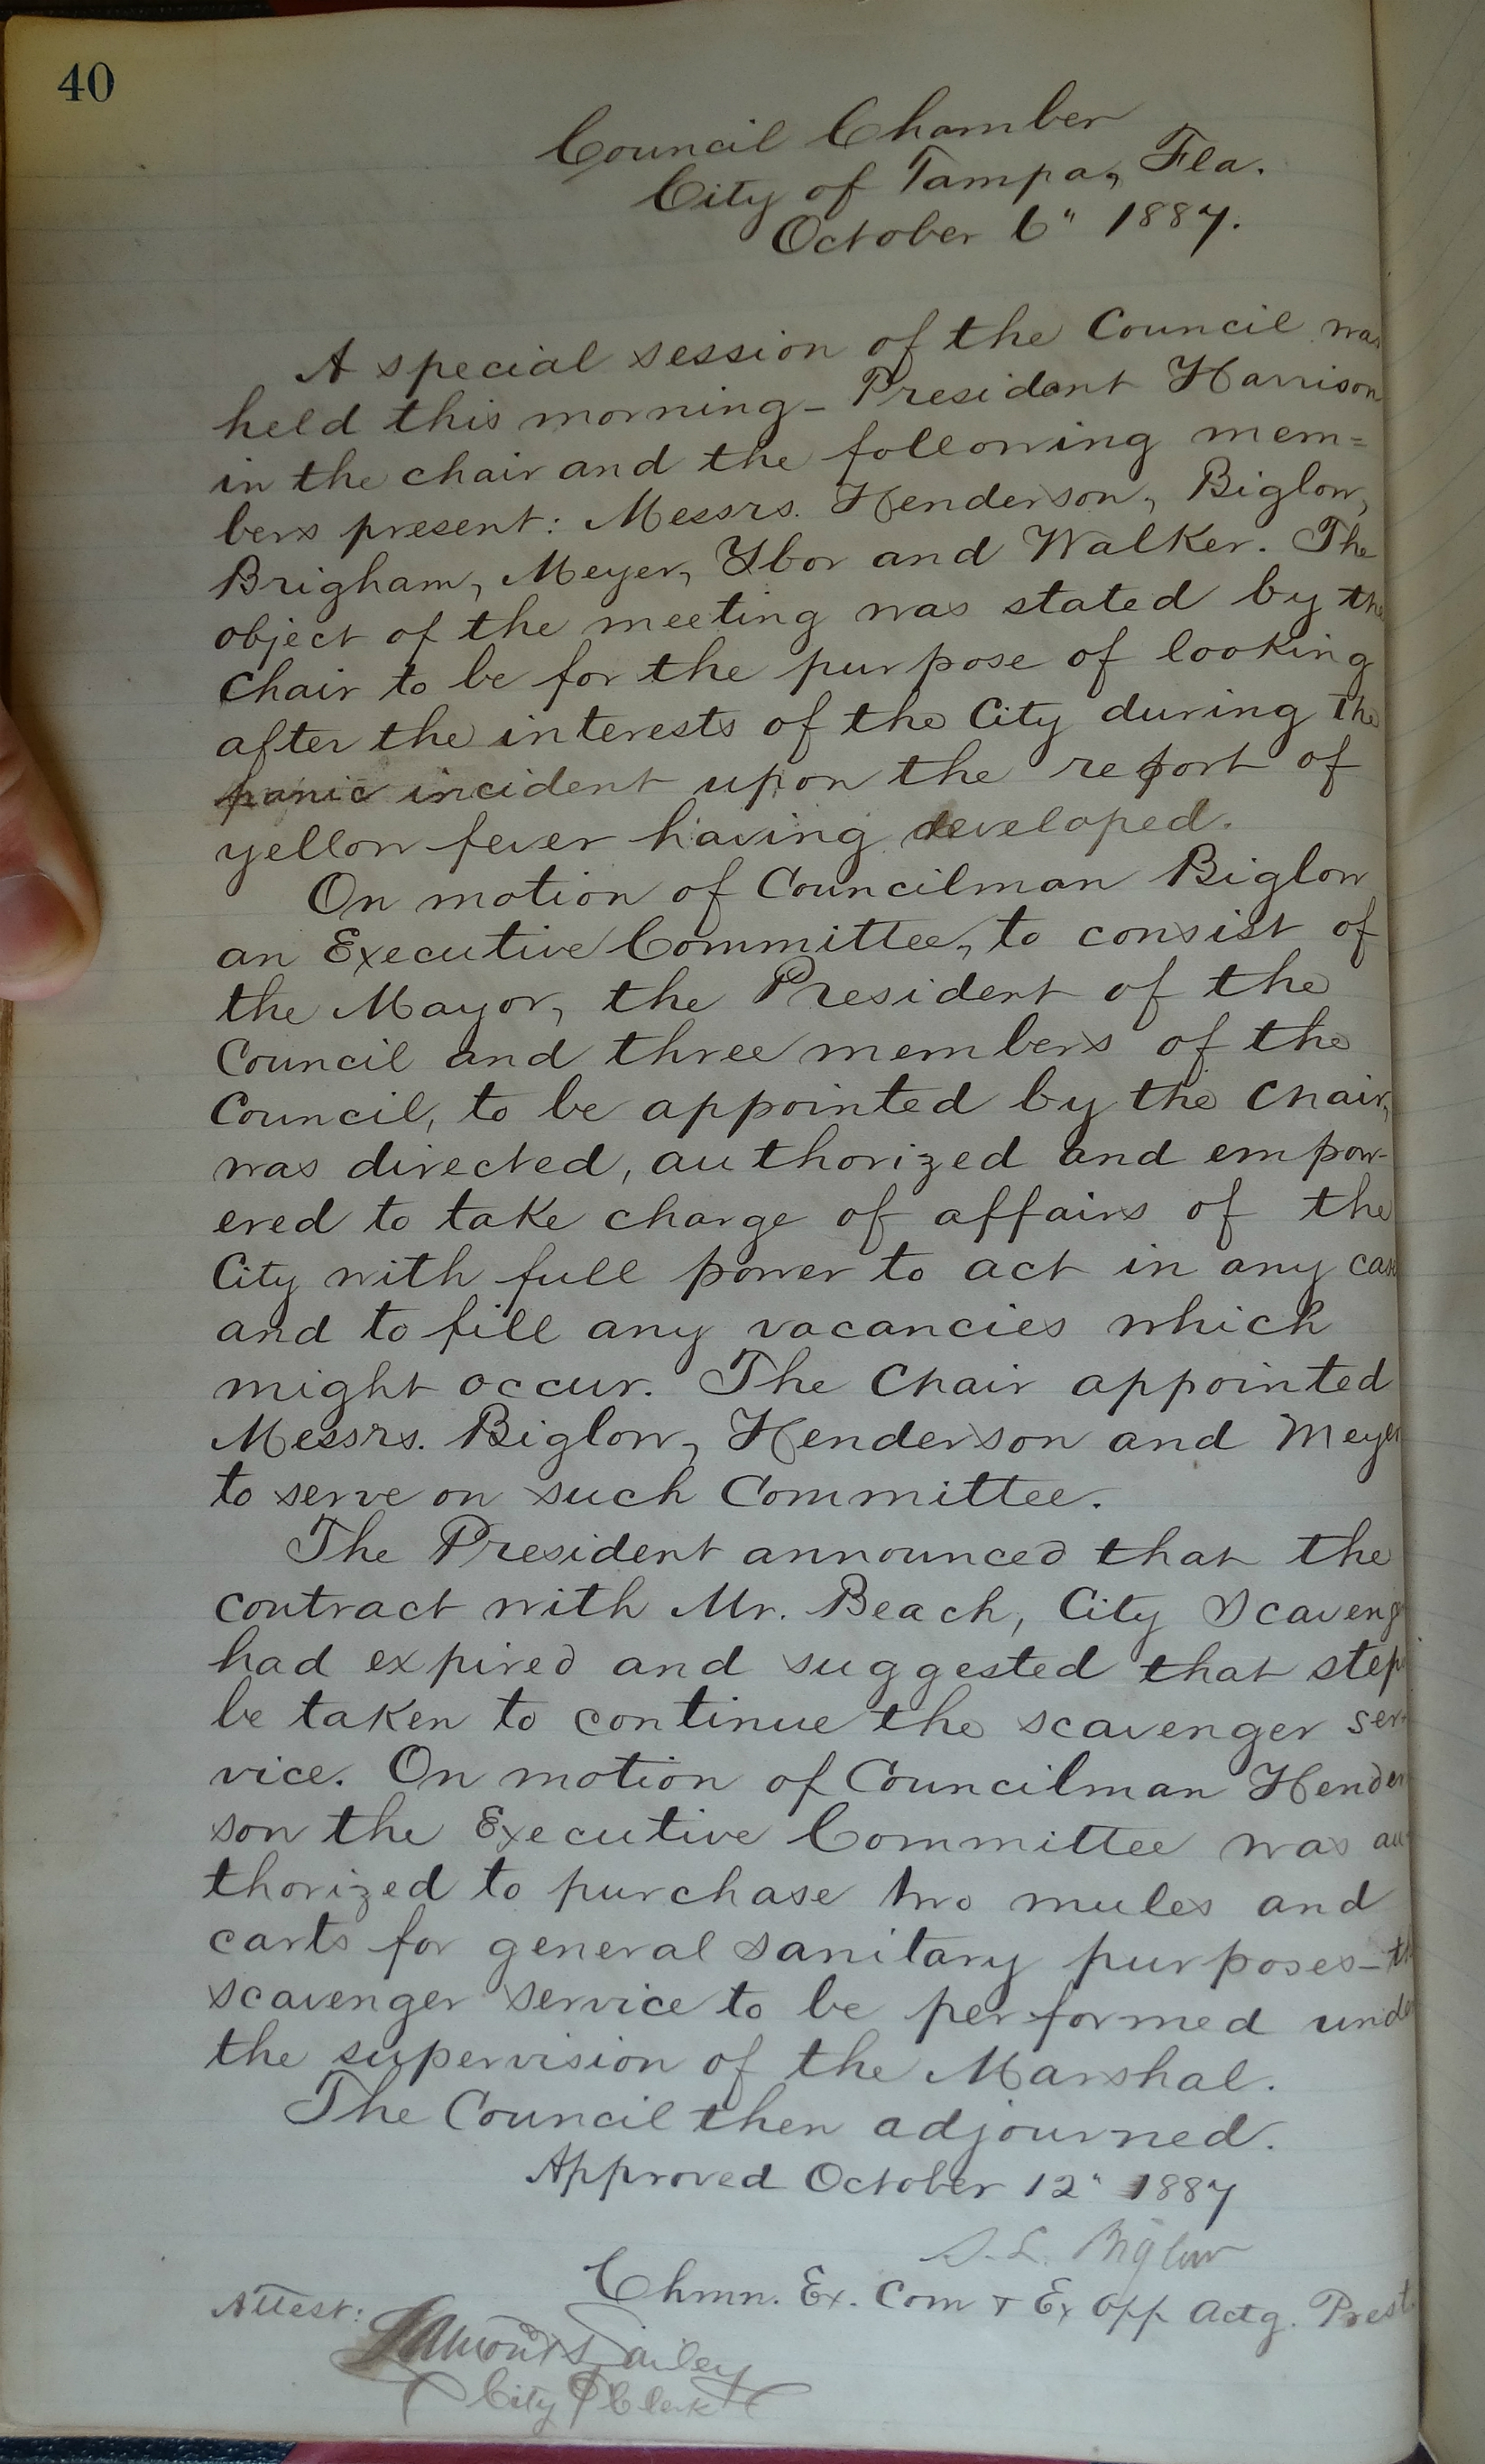 40
Council Chamber
City of Tampa, Fla.
October 6" 1887.
A special session of the Council was
held this morning - President Harrison
in the chair and the following mem=
bers present: Messrs. Henderson, Biglow,
Brigham, Meyer, Ybor and Walker. The
object of the meeting was stated by the
Chair to be for the purpose of looking
after the interests of the City during the
panic incident upon the report of
yellow fever having developed.
On motion of Councilman Biglow
an Executive Committee, to consist of
the Mayor, the President of the
Council and three members of the
Council, to be appointed by the Chair,
was directed, authorized and empow-
ered to take charge of affairs of the
City with full power to act in any case
and to fill any vacancies which
might occur. The Chair appointed
Messrs. Biglow, Henderson and Meyer
to serve on such Committee.
The President announced that the
contract with Mr. Beach, City Scaveng
had expired and suggested that step
be taken to continue the scavenger ser-
vice. On motion of Councilman Hender
son the Executive Committee was au-
thorized to purchase two mules and
carts for general sanitary purposes - th
scavenger service to be performed unde
the supervision of the Marshal.
The Council then adjourned.
Approved October 12" 1887
S. L. Biglow
Chmn. Ex. Com & Ex Off Actg. Prest.
Attest:
Lamont Bailey
City Clerk